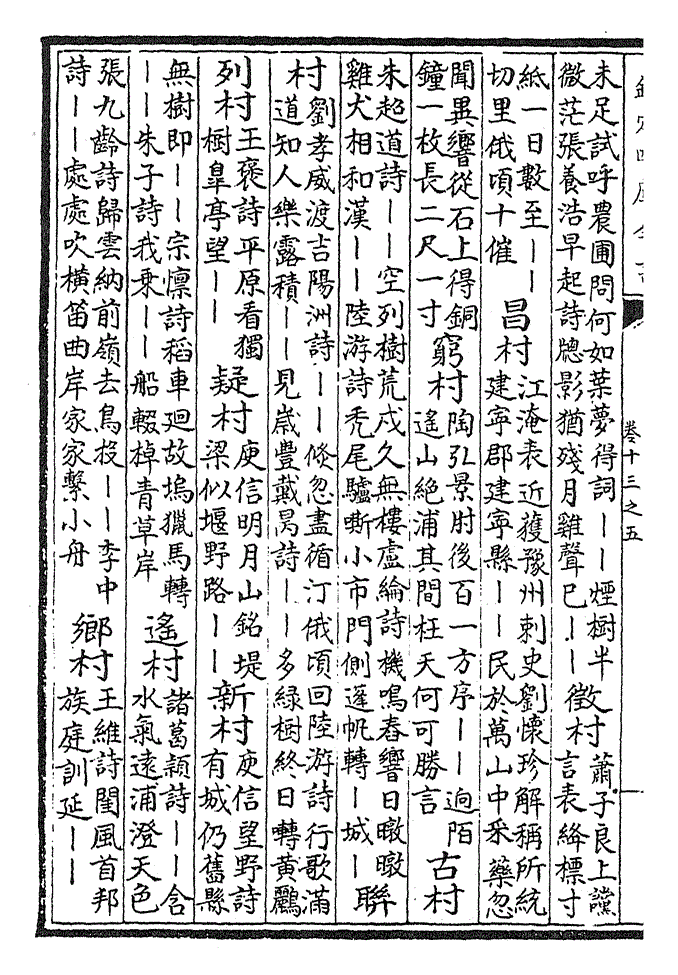 卷十三之五
未足試呼農圃問何如葉夢得詞丨丨煙樹半
微茫張養浩早起詩牕影猶殘月雞聲已丨丨
徵村
蕭子良上讜
言表絳標寸
紙一日數至丨丨
切里俄頃十催
昌村
江淹表近獲豫州刺史劉懷珍解稱所統
建寧郡建寧縣丨丨民於萬山中采藥忽
聞異響從石上得銅
鐘一枚長二尺一寸
窮村
陶弘景肘後百一方序丨丨迥陌
遙山絕浦其間枉天何可勝言
古村
朱超道詩丨丨空列樹荒戍久無樓盧綸詩機鳴舂響日暾暾
雞犬相和漢丨丨陸游詩秃尾驢嘶小市門側蓬帆轉丨城丨
聯
村
劉孝威渡吉陽洲詩丨丨倏忽盡循汀俄頃回陸游詩行歌滿
道知人樂露積丨丨見嵗豐戴昺詩丨丨多緑樹終日囀黄鸝
列村
王褒詩平原看獨
樹臯亭望丨丨
疑村
庾信明月山銘堤
梁似堰野路丨丨
新村
庾信望野詩
有城仍舊縣
無樹即丨丨宗懍詩稻車廻故塢獵馬轉
丨丨朱子詩我乗丨丨船輟棹青草岸
遙村
諸葛穎詩丨丨含
水氣遠浦澄天色
張九齡詩歸雲納前嶺去鳥投丨丨李中
詩丨丨處處吹横笛曲岸家家繫小舟
鄉村
王維詩閨風首邦
族庭訓延丨丨